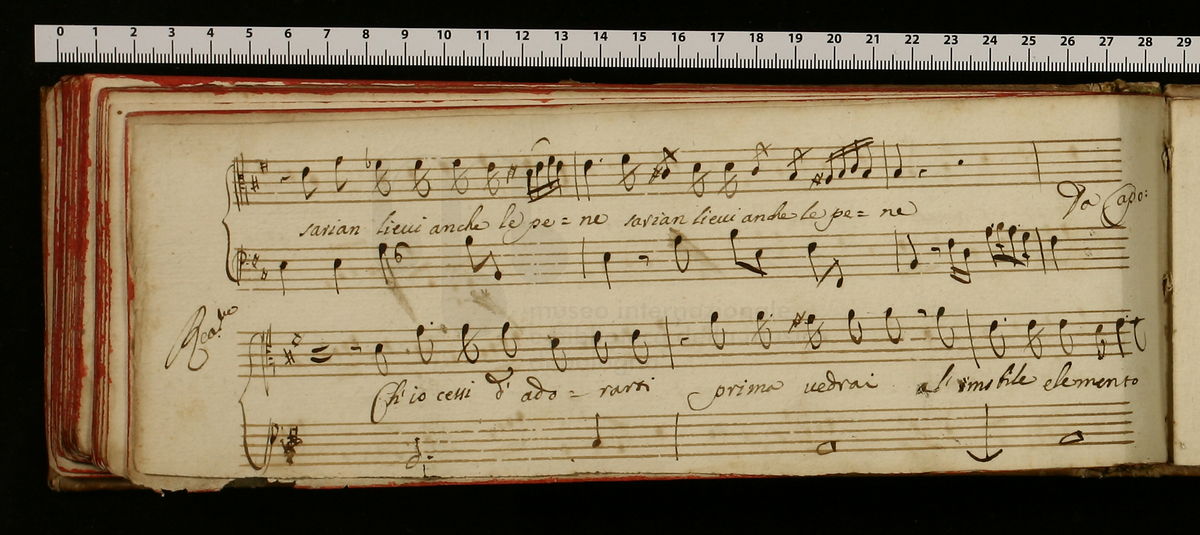 0 1 2 3 4 5 6 7 8 9 10 11 12 13 14 15 16 17 18 19 20 21 22 23 24 25 26 27 28 29
sarian lievi anche le pe = ne sarian lievi anche le pe = ne
Da Capo:
museo internazionale
Ch'io cessi d'ado = rarti prima vedrai al' imobile elemento